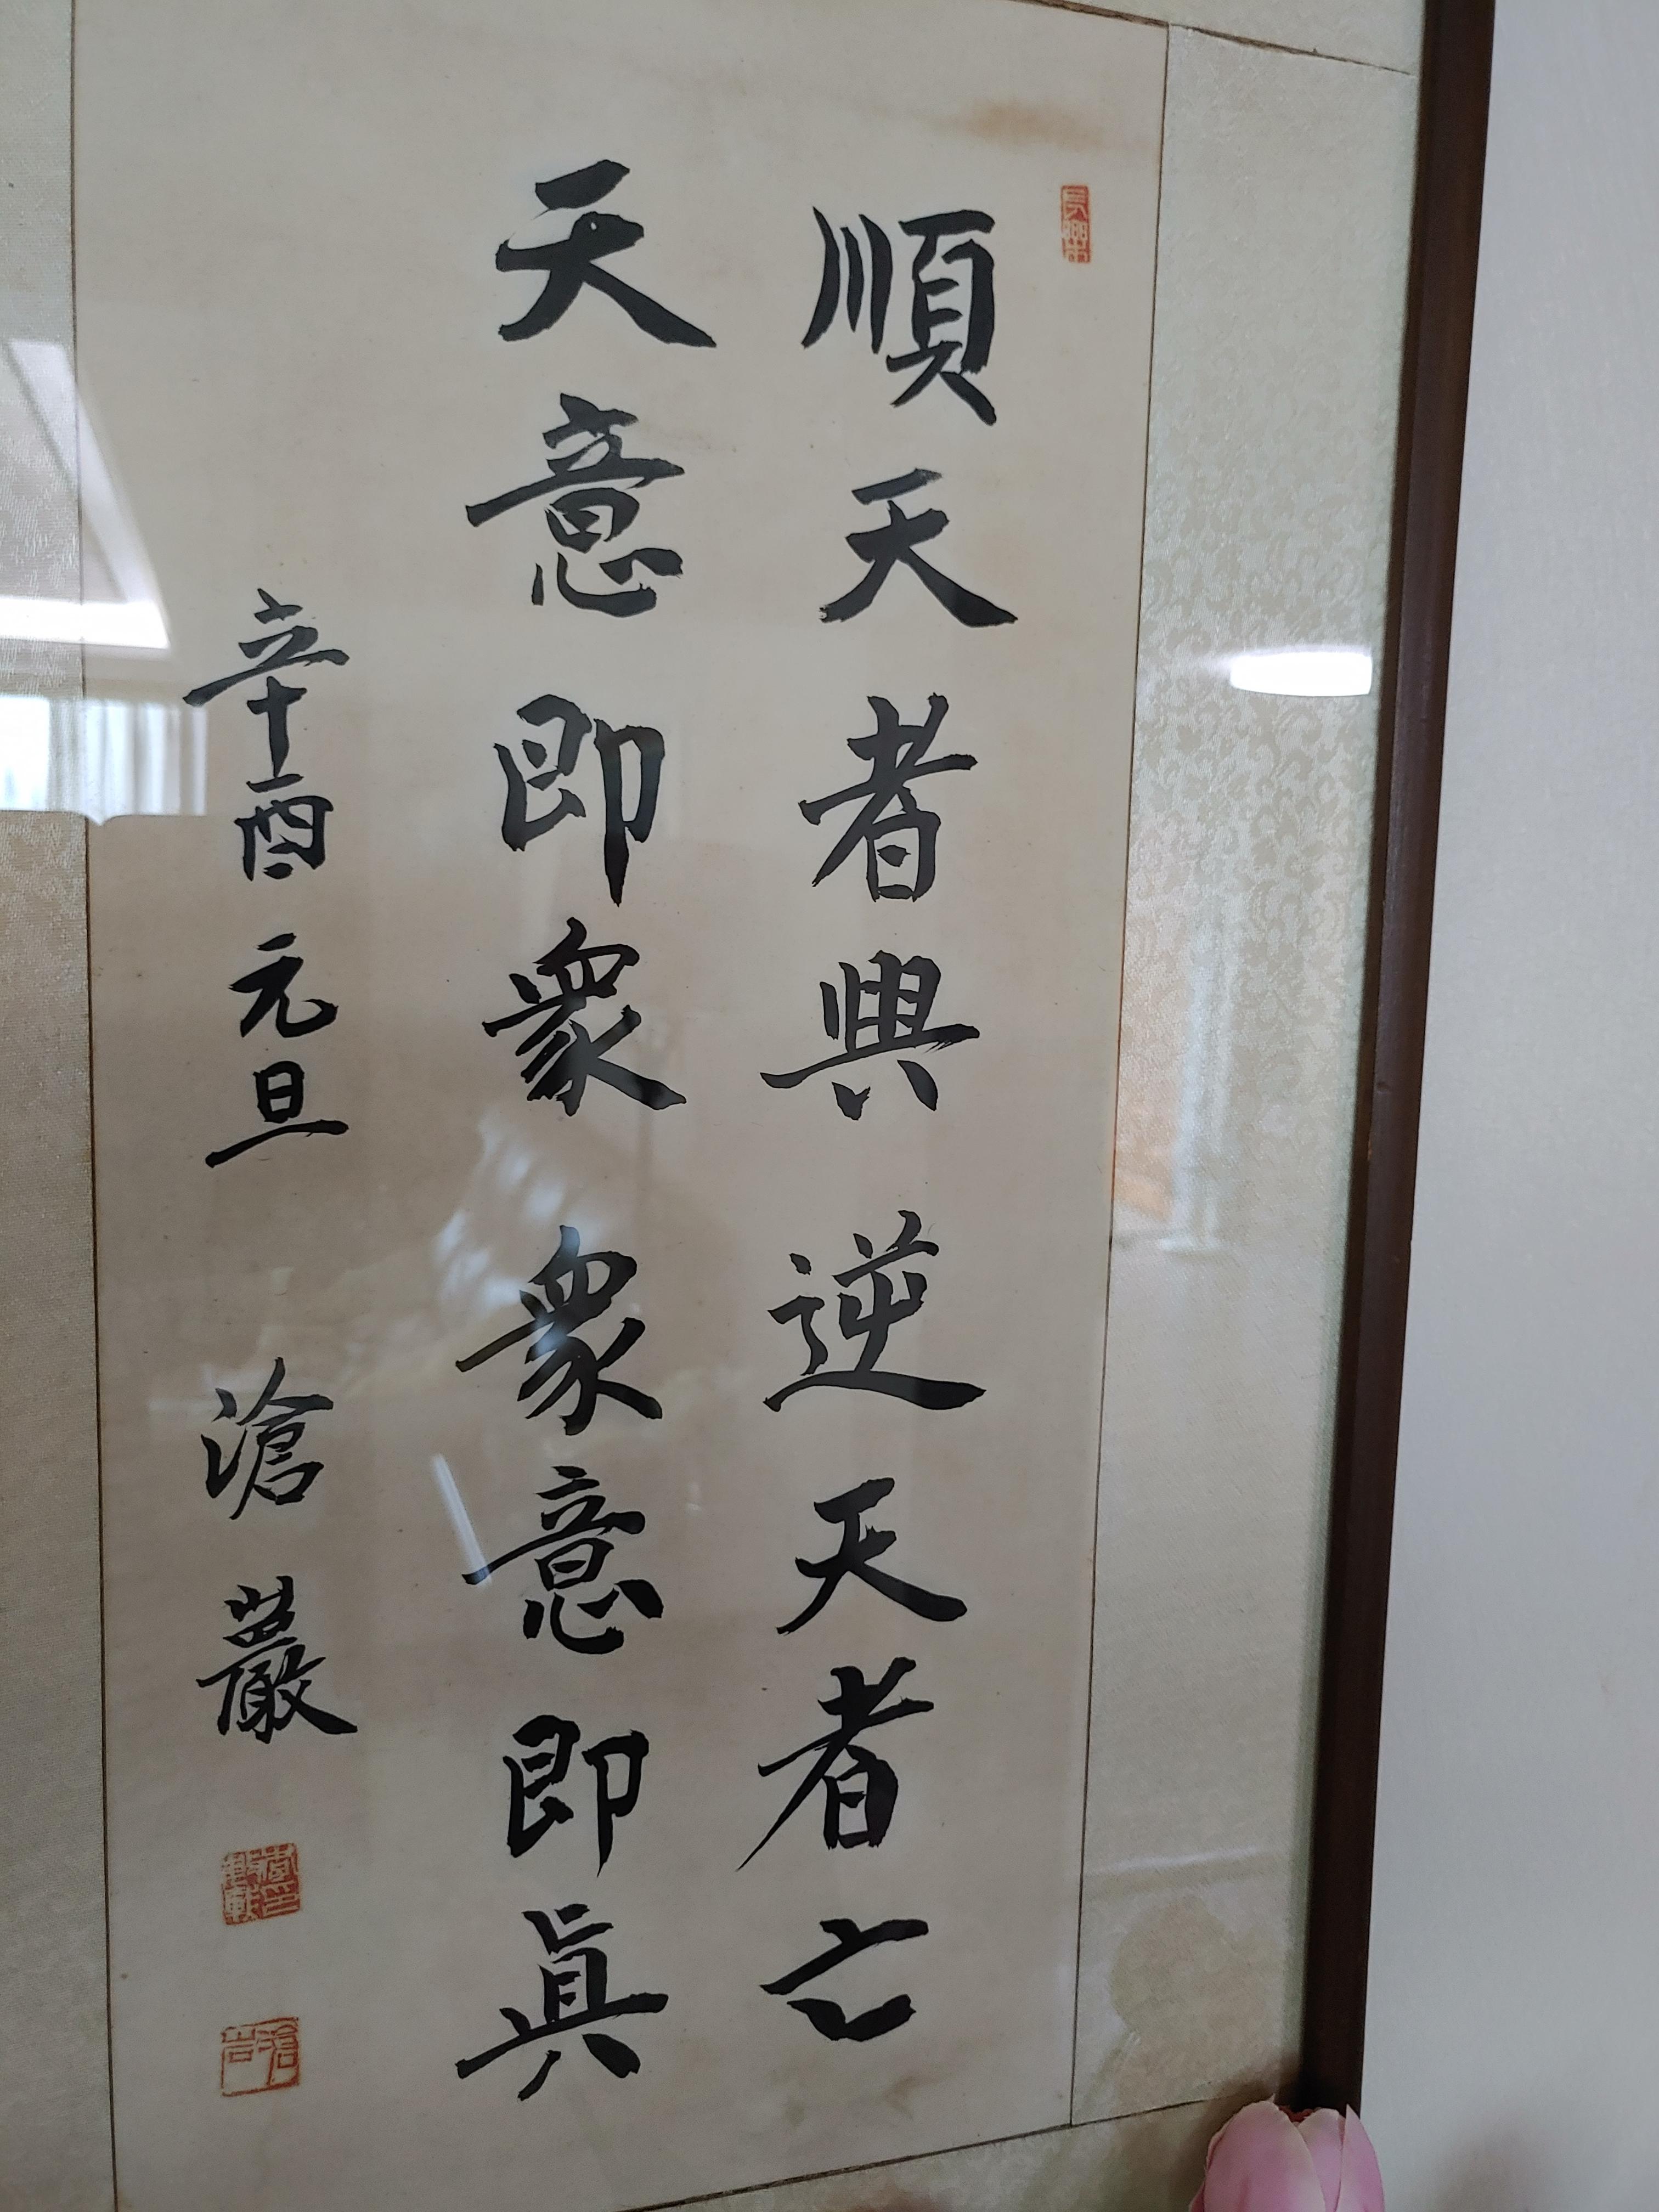 順天者興逆天者亡
天意即衆衆意即眞
辛酉元旦 滄巖